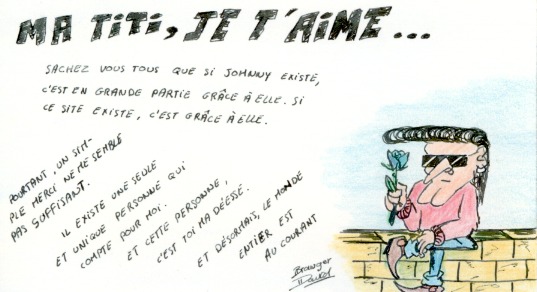 MA TiTi, JE T'AiME...
SACHEZ VOUS TOUS QUE SI JOHNNY EXISTE,
C'EST EN GRANDE PARTIE GRÂCE À ELLE. SI
CE SITE EXISTE, C'EST GRÂCE À ELLE.
POURTANT, UN SIM-
PLE MERCI NE ME SEMBLE
PAS SUFFISANT.
IL EXISTE UNE SEULE
ET UNIQUE PERSONNE QUI
COMPTE POUR MOI.
ET CETTE PERSONNE,
C'EST TOI MA DÉESSE.
ET DÉSORMAIS, LE MONDE
ENTIER EST
AU COURANT